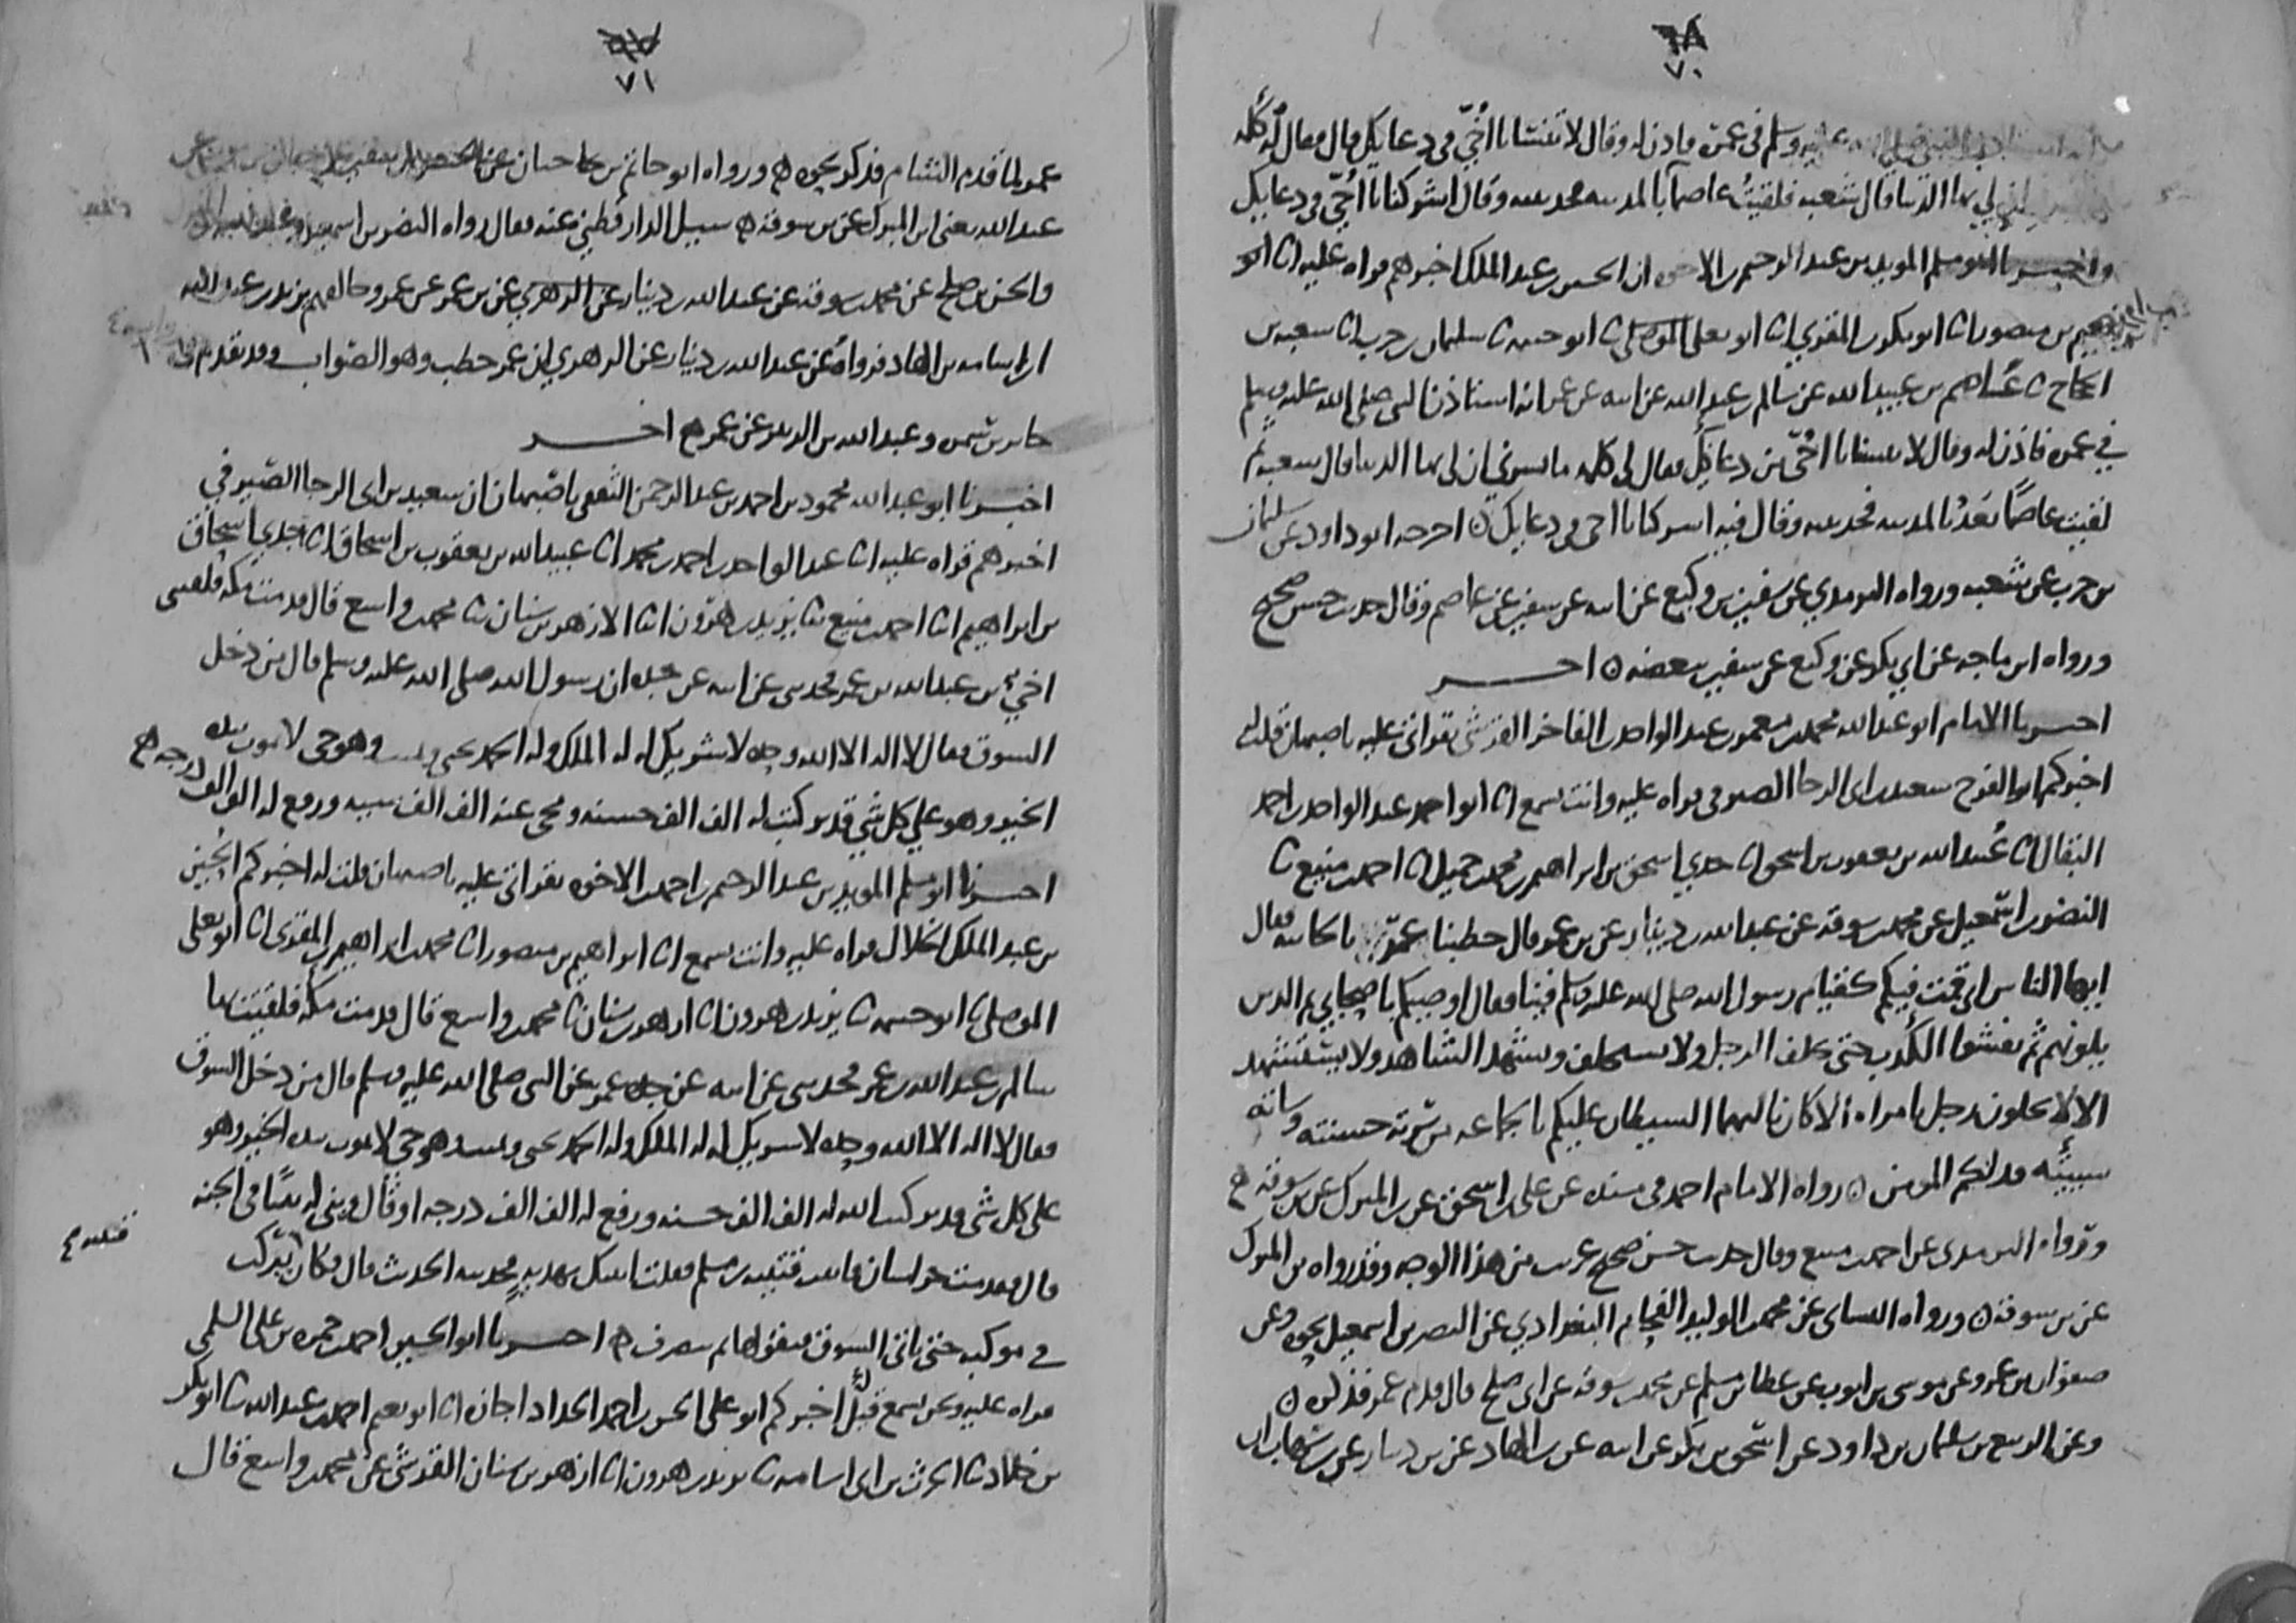 ٦٨
٧٠
عليه وسلم في عمرة فاذن له وقال لا تنسانا ا أخيّ في دعايك قال فقال لي كلمة
لي بها الدنيا قال شعبة فلقيت عاصما بالمدينة فحدثنيه وقال اشركنا يا أخيّ في دعايك
واخبرنا ابو مسلم المويد بن عبد الرحيم بن الاخوة ان الحسين بن عبد الملك اخبرهم قراه عليه انا ابرهيم
بن منصور انا ابو بكر بن المقري انا ابو يعلى الموصلي انا ابو خيثمة نا سليمان بن حرب نا شعبة بن
الحجاج نا عاصم بن عبيد الله عن سالم بن عبد الله عن ابيه عن عمر انه استاذن النبي صلى الله عليه وسلم
في عمرة فاذن له وقال لا تنسانا يا أخيّ من دعايك فقال لي كلمة ما يسرني ان لي بها الدنيا قال شعبة ثم
لقيت عاصمًا بَعدُ بالمدينة فحدثنيه وقال فيه اشركنا يا اخي في دعايك ن اخرجه ابو داود عن سليمان
بن حرب عن شعبة ورواه الترمذي عن سفين بن وكيع عن ابيه عن سفين عن عاصم وقال حديث حسن صحيح
ورواه ابن ماجه عن ابي بكر عن وكيع عن سفين ببعضه ن اخـــر
اخبرنا الامام ابو عبد الله محمد بن معمر بن عبد الواحد بن الفاخر القرشي بقراتي عليه باصبهان قلت له
اخبركم ابو الفرج سعيد بن ابي الرجا الصيرفي قراه عليه وانت تسمع انا ابو احمد عبد الواحد بن احمد
البقال انا عُبيد الله بن يعقوب بن اسحق انا جدي اسحق بن ابراهيم بن محمد بن جميل انا احمد بن منيع نا
النضر بن اسمعيل عن محمد بن سوقة عن عبد الله بن دينار عن بن عمر قال خطبنا عمر بالجابية فقال
ايها الناس اني قمت فيكم كقيام رسول الله صلى الله عليه وسلم فينا فقال اوصيكم باصحابي ثم الذين
يلونهم ثم يفشوا الكذب حتى يحلف الرجل ولا يستحلف ويشهد الشاهد ولا يستشهد
الا لا يخلون رجل بامراه الا كان ثالثهما الشيطان عليكم بالجماعة من سرته حسنته وساته
سيئته فذلكم المومن ن رواه الامام احمد في مسنده عن علي بن اسحق عن بن المبرك عن بن سوقة ه
ورواه الترمذي عن احمد بن منيع وقال حديث حسن صحيح غريب من هذا الوجه وقد رواه بن المبرك
عن بن سوقة ن ورواه النساي عن محمد بن الوليد الفحام البغدادي عن النضر بن اسمعيل بنحوه وعن
صفوان بن عمرو عن موسى بن ايوب عن عطا بن مسلم عن محمد بن سوقة عن ابي صلح قال قدم عمر فذكره ن
وعن الربيع بن سليمان بن داود عن اسحق بن بكر عن ابيه عن بن الهاد عن بن دينار عن بن شهاب ان
٦٧
٧١
عمر لما قدم الشام فذكر نحوه ه ورواه ابو حاتم بن حبان عن
عبد الله يعني ابن المبرك عن بن سوقة ه سيل الدارقطني عنه فقال رواه النضر بن اسمعيل
والحسن بن صلح عن محمد بن سوقة عن عبد الله بن دينار عن الزهري عن بن عمر عن عمر وخالفهم يزيد بن عبد الله
بن اسامة بن الهاد فرواه عن عبد الله بن دينار عن الزهري ان عمر خطب وهو الصواب وقد تقدم في
جابر بن سمرة وعبد الله بن الزبير عن عمر ه اخـــر
اخبرنا ابو عبد الله محمود بن احمد بن عبد الرحمن الثقفي باصبهان ان سعيد بن ابي الرجا الصيرفي
اخبرهم قراه عليه انا عبد الواحد بن احمد بن محمد انا عبيد الله بن يعقوب بن اسحاق انا جدي اسحاق
بن ابراهيم انا احمد بن منيع نا يزيد بن هرون انا الازهر بن سنان نا محمد بن واسع قال قدمت مكة فلقيني
اخي بن عبد الله بن عمر فحدثني عن ابيه عن جده ان رسول الله صلى الله عليه وسلم قال من دخل
السوق فقال لا اله الا الله وحده لا شريك له له الملك وله الحمد يحيي ويميت وهو حي لا يموت بيده
الخير وهو علي كل شي قدير كتب له الف الف حسنة ومحي عنه الف الف سيية ورفع له الف الف درجة ه
اخبرنا ابو مسلم المويد بن عبد الرحيم بن احمد بن الاخوة بقراتي عليه باصبهان قلت له اخبركم الحسين
بن عبد الملك الخلال قراه عليه وانت تسمع انا ابراهيم بن منصور انا محمد بن ابراهيم بن المقري انا ابو يعلى
الموصلي نا ابو خيثمة نا يزيد بن هرون انا ازهر بن سنان نا محمد بن واسع قال قدمت مكة فلقيت بها
سالم بن عبد الله بن عمر فحدثني عن ابيه عن جده عمر عن النبي صلى الله عليه وسلم قال من دخل السوق
فقال لا اله الا الله وحده لا شريك له له الملك وله الحمد يحيي ويميت وهو حي لا يموت بيده الخير وهو
على كل شي قدير كتب الله له الف الف حسنة ورفع له الف الف درجة او قال وبنى له بيتًا في الجنة
قال فقدمت خراسان فاتيت قتيبة بن مسلم فقلت اتيتك بهدية فحدثته الحديث قال فكان يركب
في موكبه حتى ياتي السوق فيقولها ثم ينصرف ه اخبرنا ابو الحسين احمد بن حمزة بن علي السلمي
قراه عليه ونحن نسمع قيل له اخبركم ابو علي الحسن بن احمد الحداد اجازة انا ابو نعيم احمد بن عبد الله نا ابو بكر
بن خلاد نا الحرث بن ابي اسامة نا يزيد بن هرون انا ازهر بن سنان القرشي عن محمد بن واسع قال